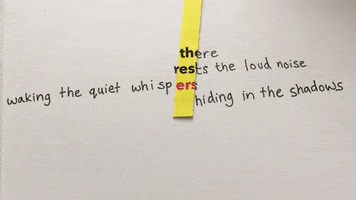 there
rests the loud noise
waking the quiet whispers
hiding in the shadows